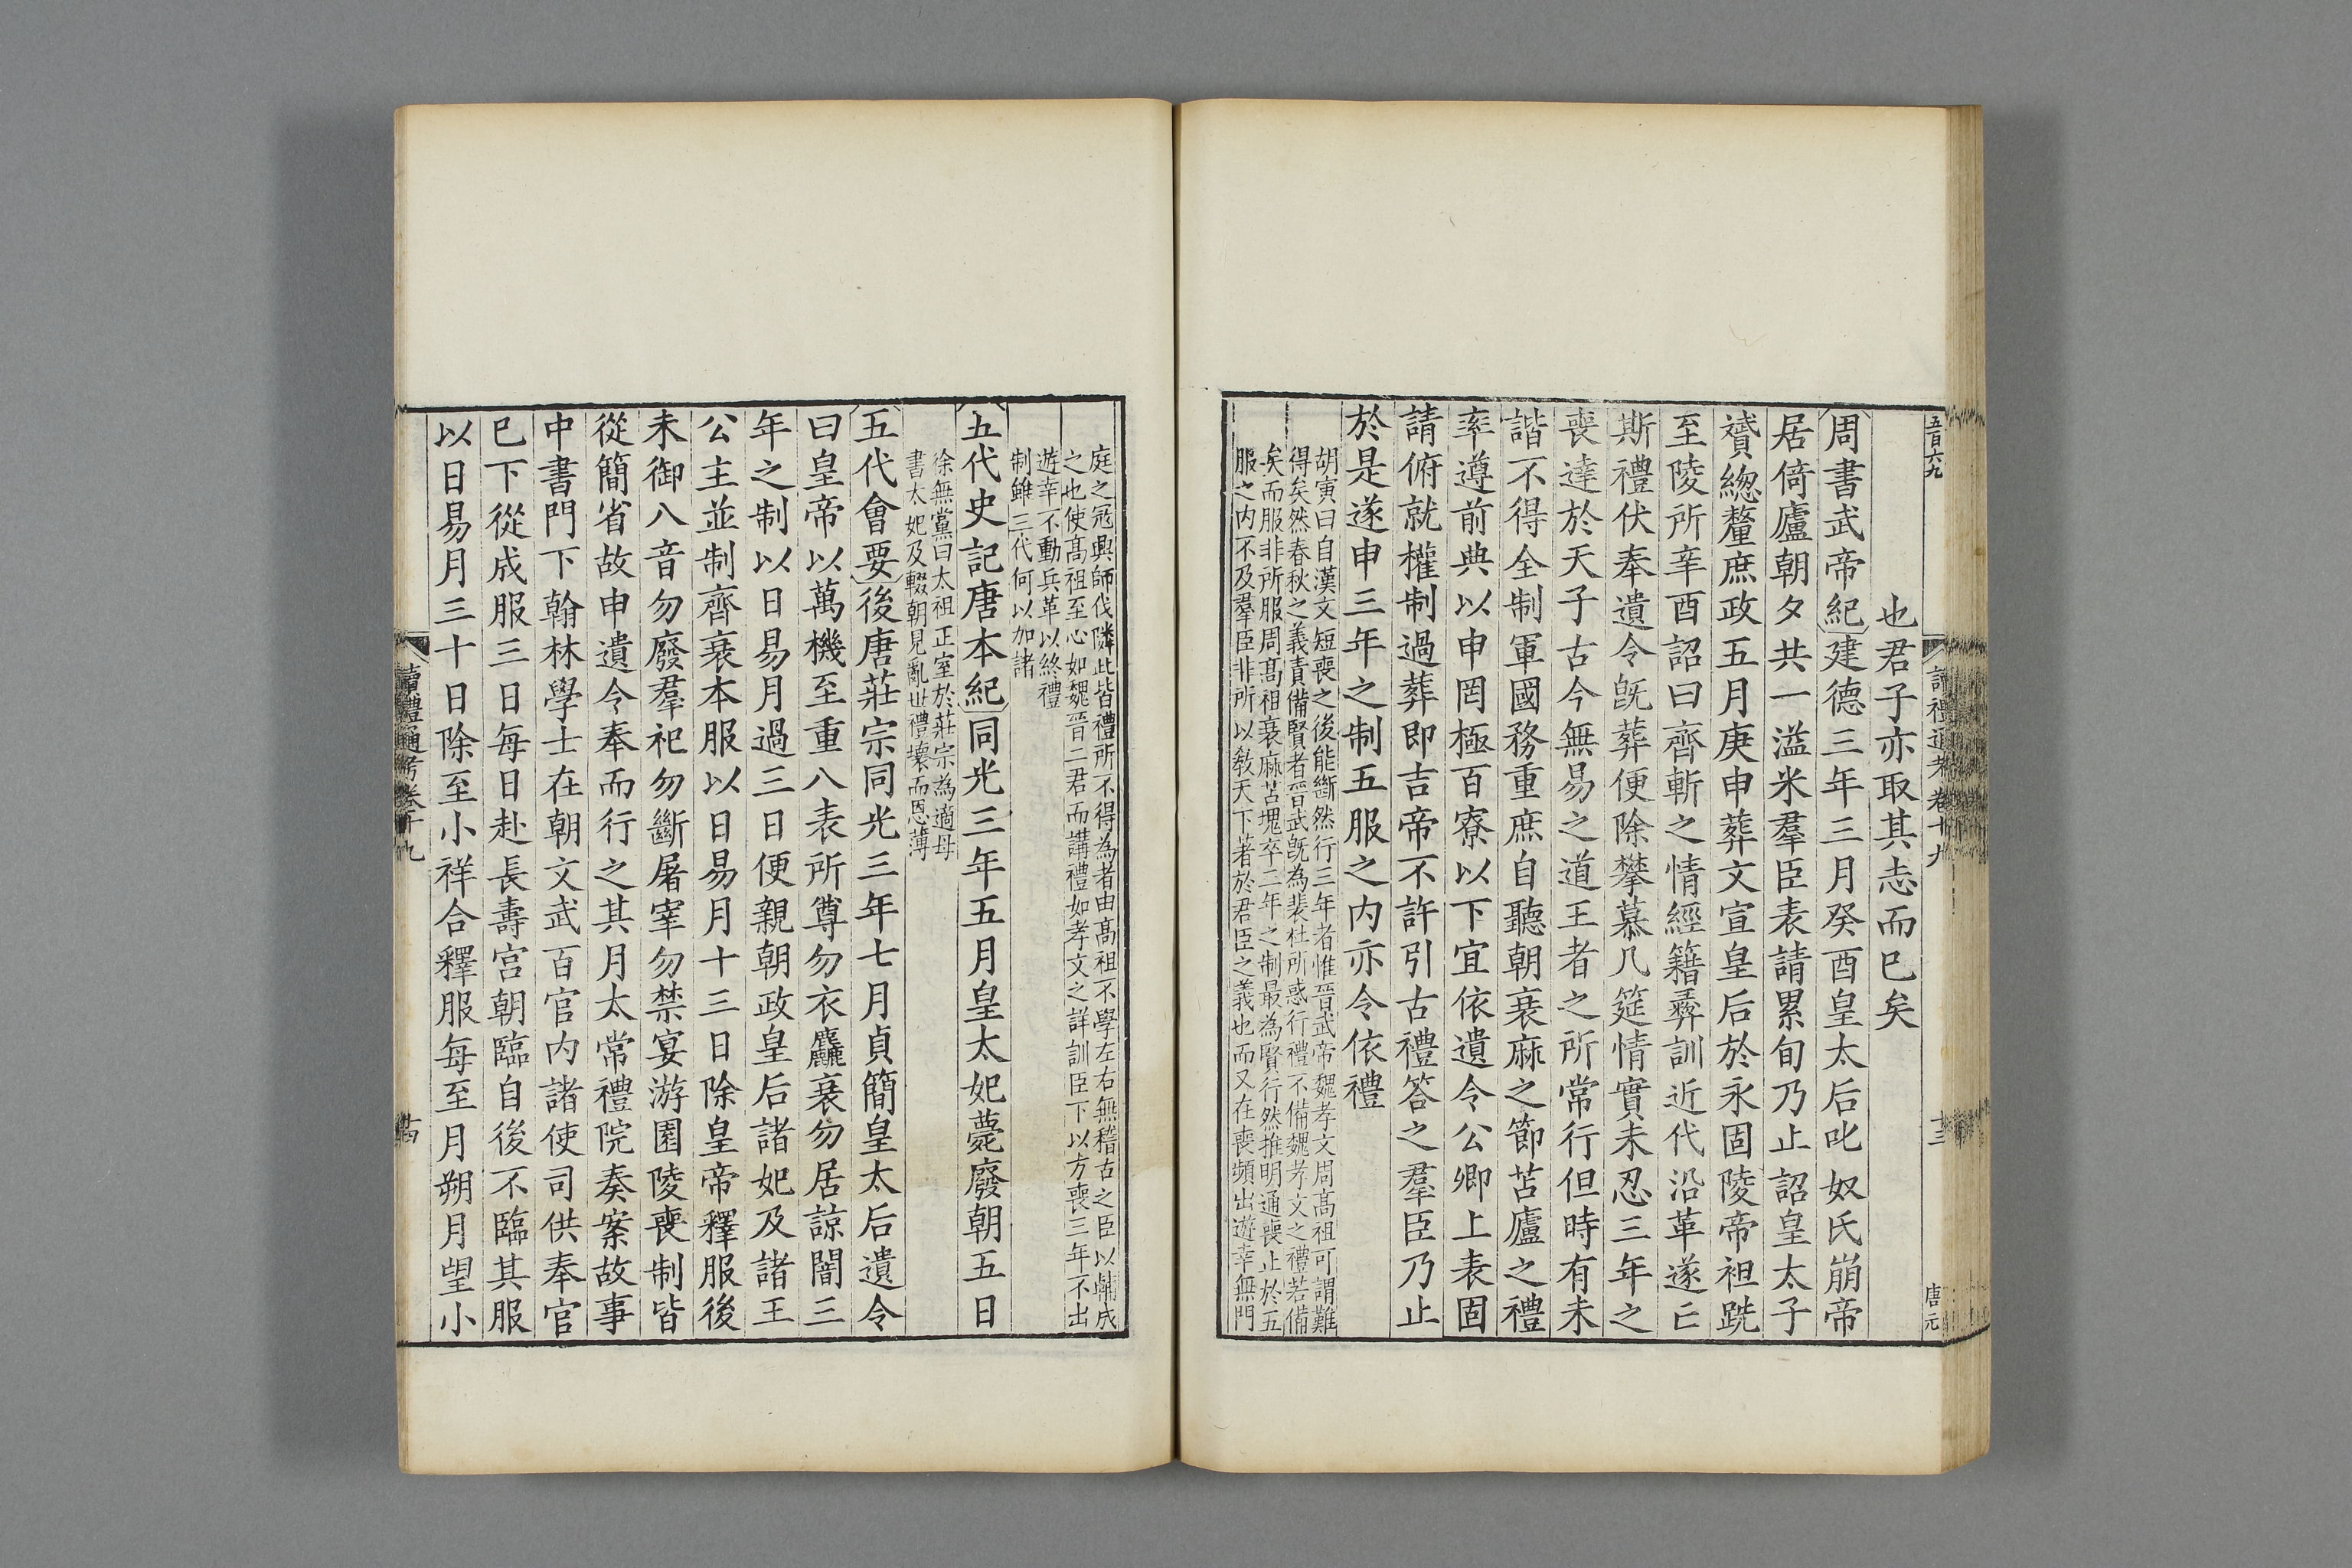 五百六九
讀禮通考卷十九
十三
唐元
也君子亦取其志而已矣
周書武帝紀建德三年三月癸酉皇太后叱奴氏崩帝
居倚廬朝夕共一溢米羣臣表請累旬乃止詔皇太子
贇緫釐庶政五月庚申葬文宣皇后於永固陵帝袒跣
至陵所辛酉詔曰齊斬之情經籍彝訓近代沿革遂亡
斯禮伏奉遺令旣葬便除攀慕几筵情實未忍三年之
喪達於天子古今無易之道王者之所常行但時有未
諧不得全制軍國務重庶自聽朝衰麻之節苫廬之禮
率遵前典以申罔極百寮以下宜依遺令公卿上表固
請俯就權制過葬即吉帝不許引古禮答之羣臣乃止
於是遂申三年之制五服之内亦令依禮
胡寅曰自漢文短喪之後能斷然行三年者惟晉武帝魏孝文周髙祖可謂難
得矣然春秋之義責備賢者晉武旣為裴杜所惑行禮不備魏孝文之禮若備
矣而服非所服周髙祖衰麻苫塊卒二年之制最為賢行然推明通喪止於五
服之内不及羣臣非所以敎天下著於君臣之義也而又在喪頻出遊幸無門
庭之冦興師伐隣此皆禮所不得為者由髙祖不學左右無稽古之臣以輔成
之也使髙祖至心如魏晉二君而講禮如孝文之詳訓臣下以方喪三年不出
遊幸不動兵革以終禮
制雖三代何以加諸
五代史記唐本紀同光三年五月皇太妃薨廢朝五日
徐無黨曰太祖正室於莊宗為適母
書太妃及輟朝見亂世禮壞而恩薄
五代會要後唐莊宗同光三年七月貞簡皇太后遺令
曰皇帝以萬機至重八表所尊勿衣麤衰勿居諒闇三
年之制以日易月過三日便親朝政皇后諸妃及諸王
公主並制齊衰本服以日易月十三日除皇帝釋服後
未御八音勿廢羣祀勿斷屠宰勿禁宴游園陵喪制皆
從簡省故申遺令奉而行之其月太常禮院奏案故事
中書門下翰林學士在朝文武百官内諸使司供奉官
已下從成服三日每日赴長壽宫朝臨自後不臨其服
以日易月三十日除至小祥合釋服每至月朔月望小
讀禮通考卷十九
十四